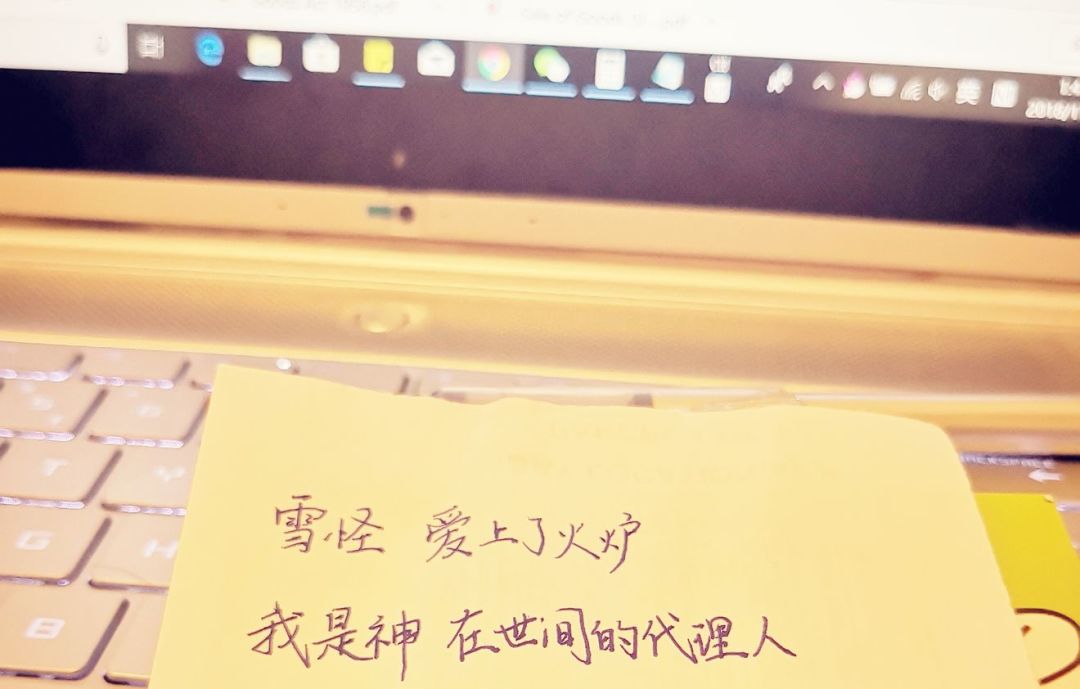 英
雪怪 爱上了火炉
我是神 在世间的代理人
BACKSPACE
T
Y
G
H
B